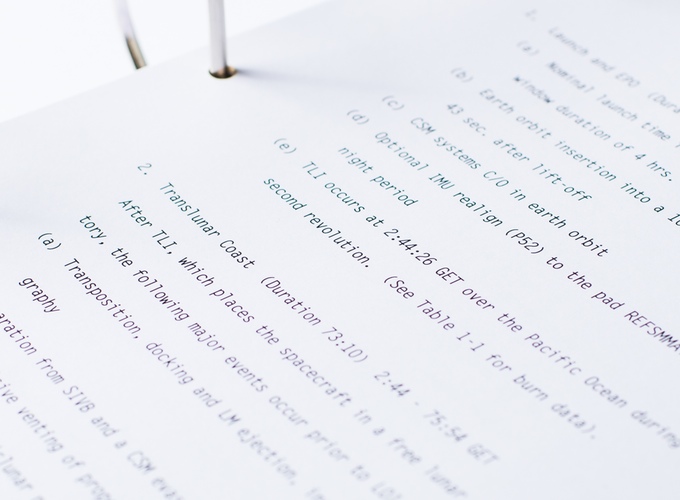 1. Launch and EPO (Dura
(a) Nominal launch time
window duration of 4 hrs.
(b) Earth orbit insertion into a 10
43 sec. after lift-off
(c) CSM systems C/O in earth orbit
(d) Optional IMU realign (P52) to the pad REFSMMA
night period
(e) TLI occurs at 2:44:26 GET over the Pacific Ocean during
second revolution. (See Table 1-1 for burn data).
2. Translunar Coast (Duration 73:10) 2:44 - 75:54 GET
After TLI, which places the spacecraft in a free lunar
tory, the following major events occur prior to LOI
(a) Transposition, docking and LM ejection,
graphy
aration from SIVB and a CSM evas
tive venting of prop
lunar